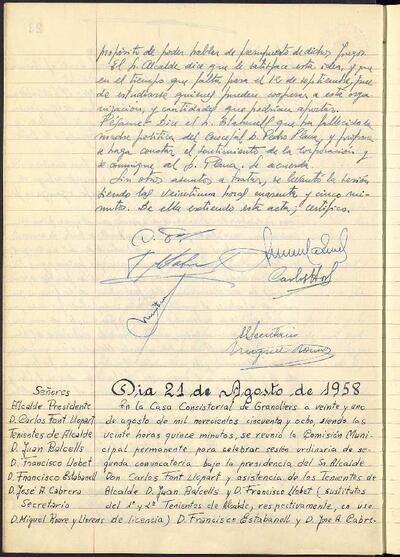 propósito de poder hablar de presupuesto de dichos Juegos.
El Sr. Alcalde dice que le satisface esta idea, y que
en el tiempo que falta para el 1º de septiembre, puede
estudiarse quienes pueden cooperar a esta orga-
nización, y cantidades que podrían aportar.
Pésame. Dice el Sr. Estabanell que ha fallecido la
madre política del Concejal D. Pedro Plana, y propone
se haga constar el sentimiento de la Corporación y
se comunique al Sr. Plana. Se acuerda.
Sin otro asunto a tratar, se levanta la sesión
siendo las veintiuna horas cuarenta y cinco mi-
nutos. De ella extiendo esta acta; certifico.
Carlos Font
El Secretario
Miguel Roure
Día 21 de Agosto de 1958
Señores
Alcalde Presidente
D. Carlos Font Llopart
Tenientes de Alcalde
D. Juan Balcells
D. Francisco Llobet
D. Francisco Estabanell
D. José A. Cabrera
Secretario
D. Miguel Roure y Llorens
En la Casa Consistorial de Granollers a veinte y uno
de agosto de mil novecientos cincuenta y ocho, siendo las
veinte horas quince minutos, se reunió la Comisión Muni-
cipal permanente para celebrar sesión ordinaria de se-
gunda convocatoria bajo la presidencia del Sr. Alcalde
Don Carlos Font Llopart y asistencia de los Tenientes de
Alcalde D. Juan Balcells y D. Francisco Llobet (sustitutos
del 1º y 2º Tenientes de Alcalde, respectivamente, en uso
de licencia) D. Francisco Estabanell y D. José A. Cabre-